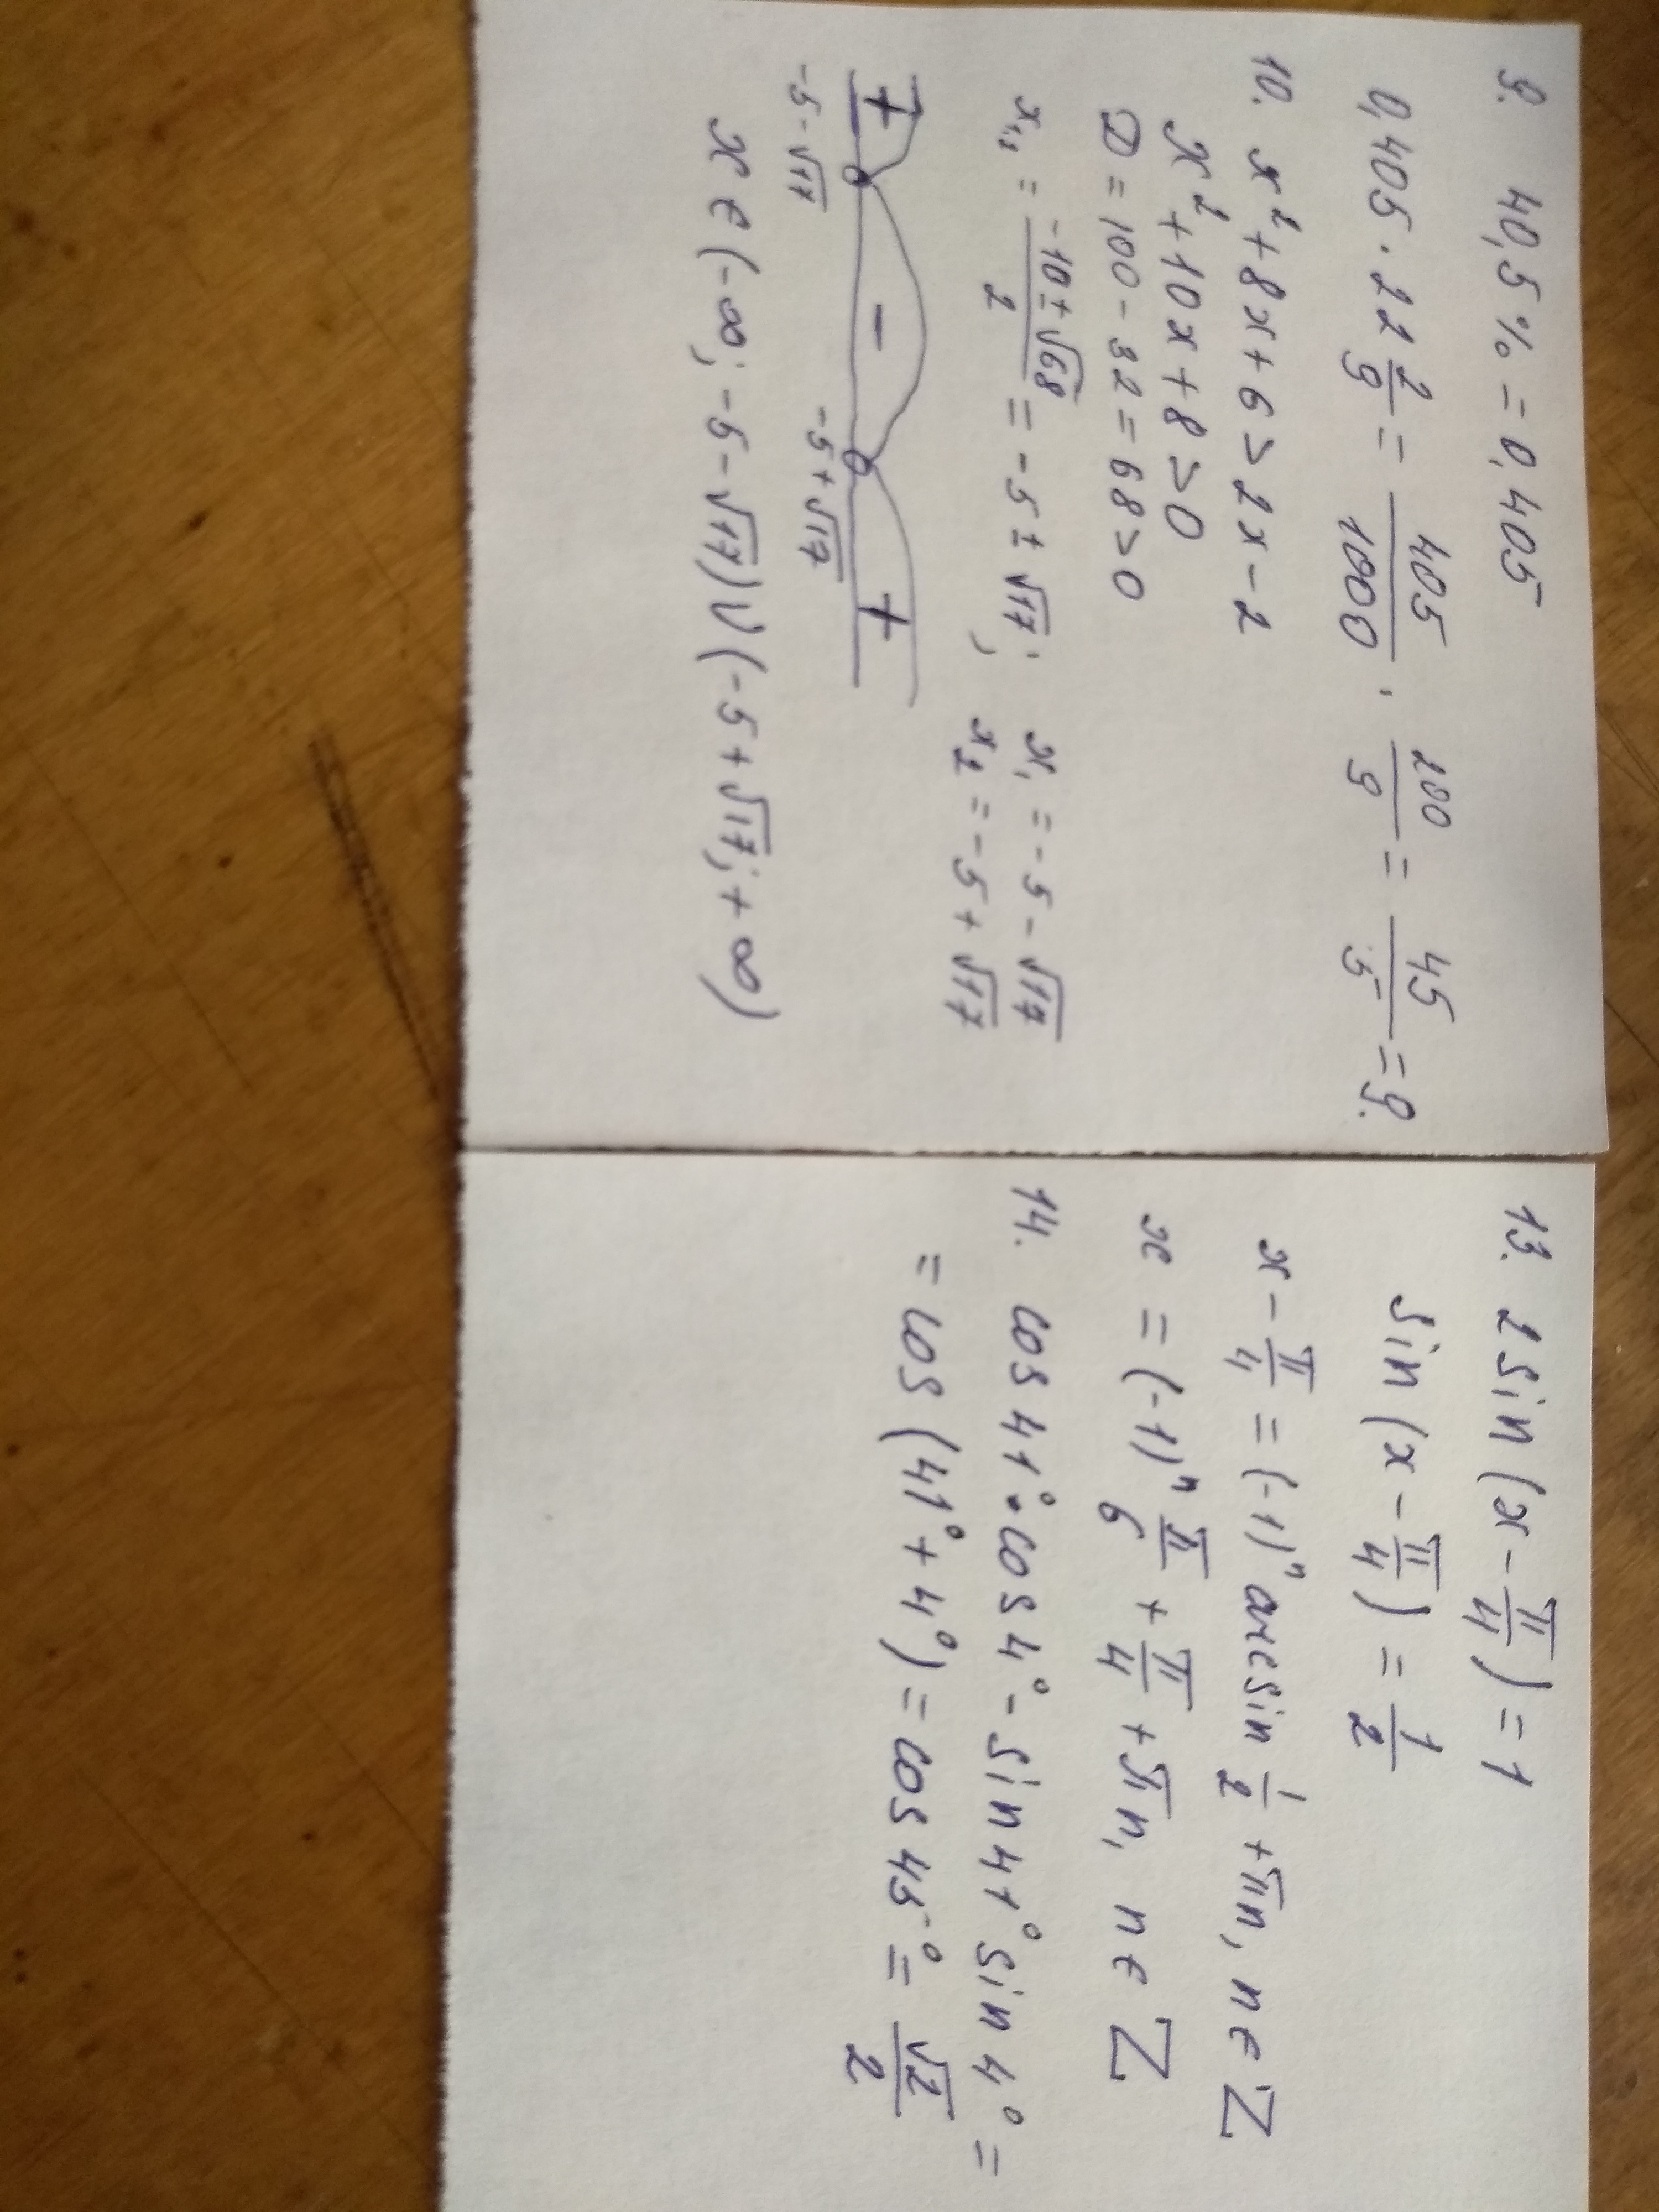 9. 40,5% = 0,405
0,405 · 22 2/9 = 405/1000 · 200/9 = 45/5 = 9.
10. x² + 8x + 6 > 2x - 2
x² + 10x + 8 > 0
D = 100 - 32 = 68 > 0
x₁,₂ = (-10 ± √68)/2 = -5 ± √17; x₁ = -5 - √17
x₂ = -5 + √17
+ - +
-5 - √17 -5 + √17
x ∈ (-∞; -5 - √17) ∪ (-5 + √17; +∞)
13. 2 sin (x - π/4) = 1
sin (x - π/4) = 1/2
x - π/4 = (-1)ⁿ arcsin 1/2 + πn, n ∈ Z
x = (-1)ⁿ π/6 + π/4 + πn, n ∈ Z
14. cos 41° · cos 4° - sin 41° sin 4° =
= cos (41° + 4°) = cos 45° = √2/2